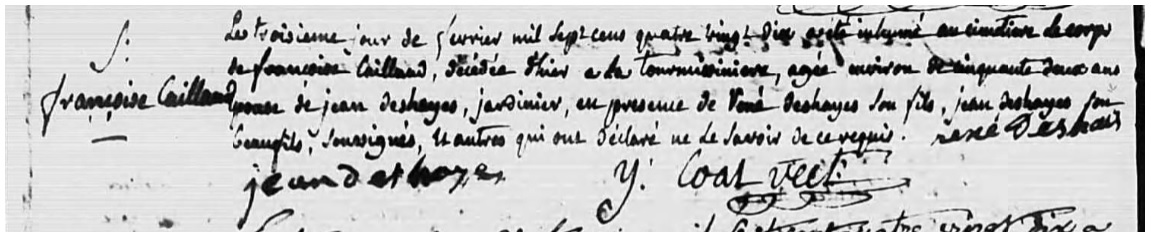 S.
françoise Caillaud
Le troisieme jour de février mil sept cens quatre vingt dix a eté inhumé au cimetiere le corps
de françoise Caillaud, décédée d'hier a la tourmissiniere, agée environ de cinquante deux ans
epouse de jean deshayes, jardinier, en presence de René deshayes son fils, jean deshayes son
beaufils, soussignés, et autres qui ont déclaré ne le savoir de ce requis. rené Deshais
jean deshayes y. Coat vicr.